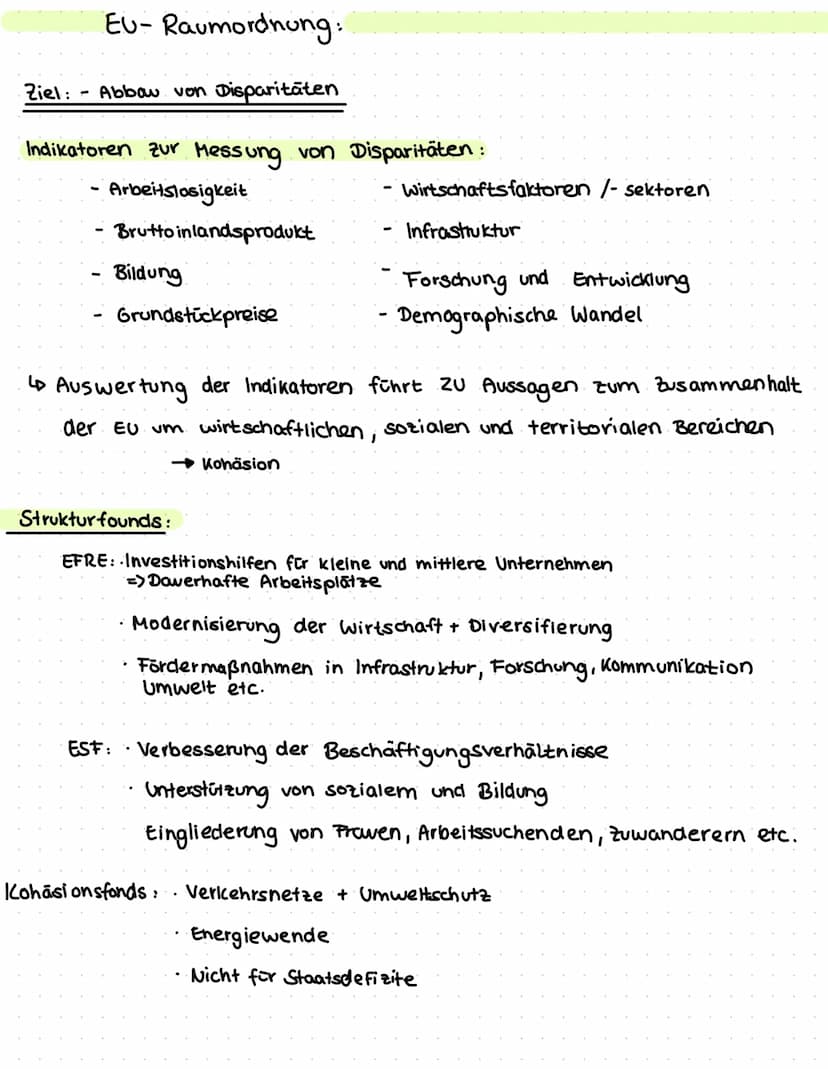 EU- Raumordnung:
Ziel: - Abbau von Disparitäten
Indikatoren zur Messung von Disparitäten:
- Arbeitslosigkeit - Wirtschaftsfaktoren /- sektoren
- Bruttoinlandsprodukt - Infrastruktur
- Bildung - Forschung und Entwicklung
- Grundstückpreise - Demographische Wandel
↳ Auswertung der Indikatoren führt zu Aussagen zum Zusammenhalt
der EU um wirtschaftlichen, sozialen und territorialen Bereichen
→ Kohäsion
Strukturfounds:
EFRE: · Investitionshilfen für kleine und mittlere Unternehmen
=> Dauerhafte Arbeitsplätze
· Modernisierung der Wirtschaft + Diversifierung
· Fördermaßnahmen in Infrastruktur, Forschung, Kommunikation
Umwelt etc.
ESF: · Verbesserung der Beschäftigungsverhältnisse
· Unterstützung von sozialem und Bildung
Eingliederung von Frauen, Arbeitssuchenden, Zuwanderern etc.
Kohäsionsfonds: · Verkehrsnetze + Umweltschutz
· Energiewende
· Nicht für Staatsdefizite